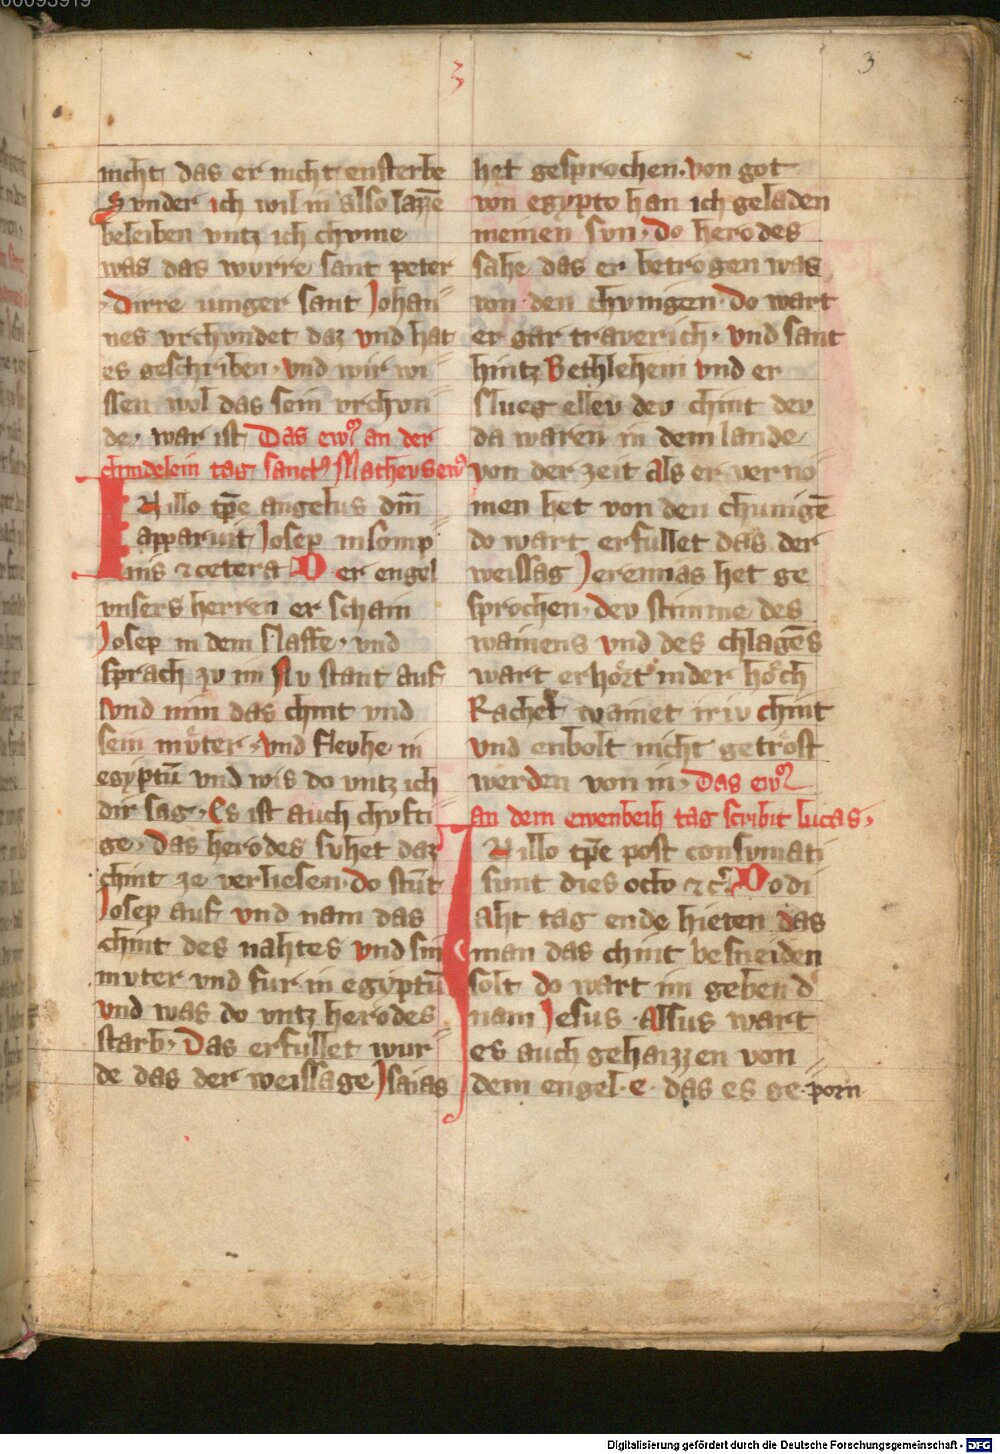 00093919
3
3
nicht das er nicht ensterbe
Sunder ich wil in also lazzē
beleiben vntz ich chvme
was das wurre sant peter
Dirre iunger sant Johan
nes vrchvndet daz vnd hat
es geschriben · vnd wir wi
ssen wol das sein vrchvn
de · war ist Das ew̉ an der
chindelein tag sanctꝰ Matheus ew̉
IN illo tp̄e angelus dn̄i
apparuit Josep in somp
niis ⁊ cetera Der engel
vnsers herren er schain
Josep in dem slaffe · vnd
sprach zv im Nv stant auf
vnd nim das chint vnd
sein mvͦter · vnd flevhe in
egyptū vnd wis do vntz ich
dir sag · Es ist auch chvfti
ge · Das herodes svhet daz
chint ze verliesen · do stūt
Josep auf vnd nam das
chint des nahtes vnd sin
mvter vnd fur in egyptū
vnd was do vntz herodes
starb · Das erfullet wur
de das der weissage Jsaias
het gesprochen · von got
von egypto han ich geladen
meinen svn · do herodes
sahe das er betrogen was
von den chvnigen · Do wart
er gar traverich · vnd sant
hintz Bethlehem vnd er
slueg ellev dev chint dev
da waren in dem lande
von der zeit als er verno
men het von den chunigē
do wart erfullet das der
weissag Jeremias het ge
sprochen · dev stimme des
wainens vnd des chlagēs
wart erhört in der höch
Rachel wainet iriv chint
vnd enbolt nicht getröst
werden von in · Das ew̉
an dem ewenbeih tag scribit lucas ·
IN illo tp̄e post consvmati
sunt dies octo ⁊ c̉ Do di
aht tag ende hieten das
man das chint besneiden
solt do wart im geben d̉
nam Jesus · Alsus wart
es auch gehaizzen von
dem engel · e · das es ge porn
Digitalisierung gefördert durch die Deutsche Forschungsgemeinschaft - DFG